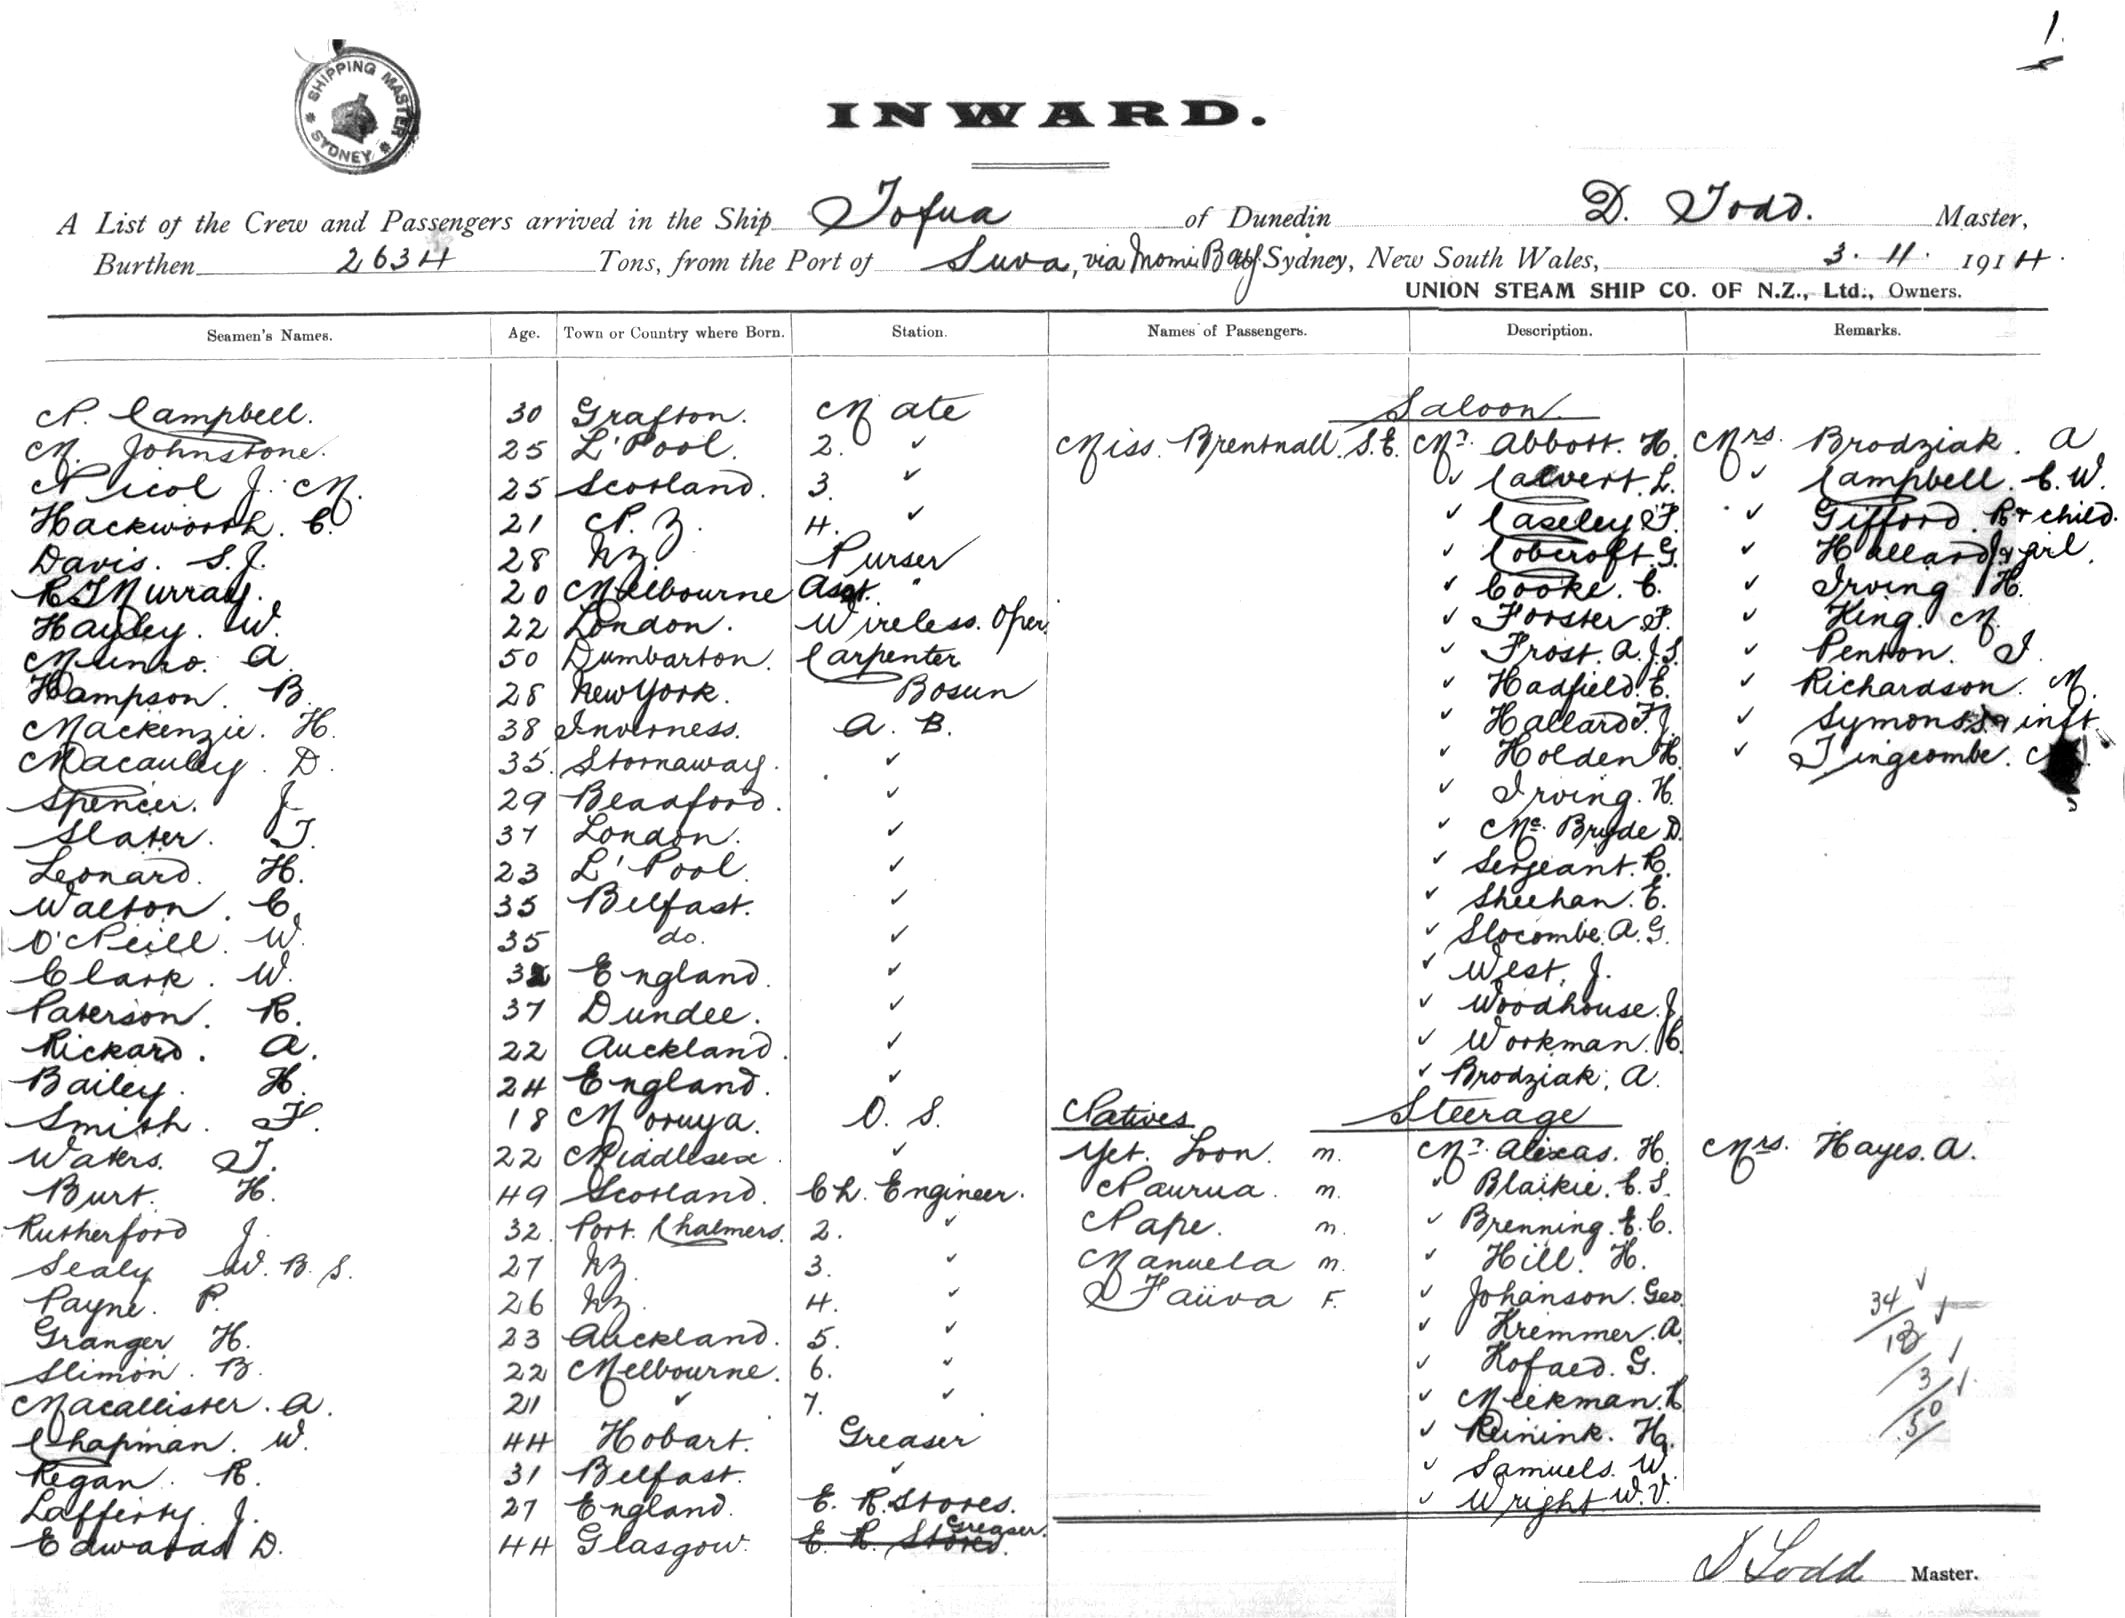 1.
SHIPPING MASTER
SYDNEY
INWARD.
A List of the Crew and Passengers arrived in the Ship Tofua of Dunedin D. Todd. Master,
Burthen 2634 Tons, from the Port of Suva, via Momi Bay Sydney, New South Wales, 3. 11. 1914.
UNION STEAM SHIP CO. OF N.Z., Ltd., Owners.
Seamen's Names. Age. Town or Country where Born. Station. Names of Passengers. Description. Remarks.
Saloon
N. Campbell. 30 Grafton. Mate
M. Johnstone. 25 L'Pool. 2. " Miss. Brentnall. S.E. Mr. Abbott. H. Mrs. Brodziak. A
Nicol J. M. 25 Scotland. 3. " " Calvert. L. " Campbell. C. W.
Hackworth. C. 21 N. Z. 4. " " Caseley F. " Gifford. R + child.
Davis. S. J. 28 NZ. Purser " Cobcroft. G. " Hallard J + girl.
R F Murray. 20 Melbourne Asst. " " Cooke. C. " Irving H.
Hayley. W. 22 London. Wireless. Oper. " Forster. F. " King. M.
Munro. A. 50 Dumbarton. Carpenter " Frost. A. J. S. " Penton. I.
Hampson. B. 28 New York. Bosun " Hadfield. E. " Richardson. M.
Mackenzie. H. 38 Inverness. A. B. " Hallard F. J. " Symons S + inft.
Macauley. D. 35. Stornaway. " " Holden H. " Tingcombe.
Spencer. J. 29 Bradford. " " Irving. H.
Slater. T. 37 London. " " Mc. Bryde D.
Leonard. H. 23 L'Pool. " " Sergeant. R.
Walton. C. 35 Belfast. " " Sheehan. E.
O'Neill. W. 35 do. " " Slocombe. A. G.
Clark. W. England. " " West. J.
Paterson. R. 37 Dundee. " " Woodhouse. J.
Rickard. A. 22 Auckland. " " Workman. C.
Bailey. H. 24 England. " " Brodziak. A.
Smith. F. 18 Moruya. O. S. Natives Steerage
Waters. T. 22 Middlesex. " Yet. Loon. m. Mr. Alexas. H. Mrs. Hayes. A.
Burt. H. 49 Scotland. Ch. Engineer. Naurua. m. " Blaikie. C. S.
Rutherford J. 32. Port. Chalmers. 2. " Nape. m. " Brenning. E. C.
Sealy W. B. S. 27 NZ. 3. " Manuela m. " Hill. H.
Payne. P. 26 NZ. 4. " Faüva F. " Johanson. Geo.
Granger H. 23 Auckland. 5. " " Kremmer. A.
Slimon. B. 22 Melbourne. 6. " " Kofaed. G.
Macallister. A. 21 " 7. " " Meekman. R.
Chapman. W. 44 Hobart. Greaser " Reinink. H.
Regan. R. 31 Belfast. " " Samuels. W.
Lafferty. J. 27 England. E. R. Stores. " Wright W. V.
Edwards D. 44 Glasgow. E. R. Stores. Greaser.
34
13
3
50
D Todd Master.